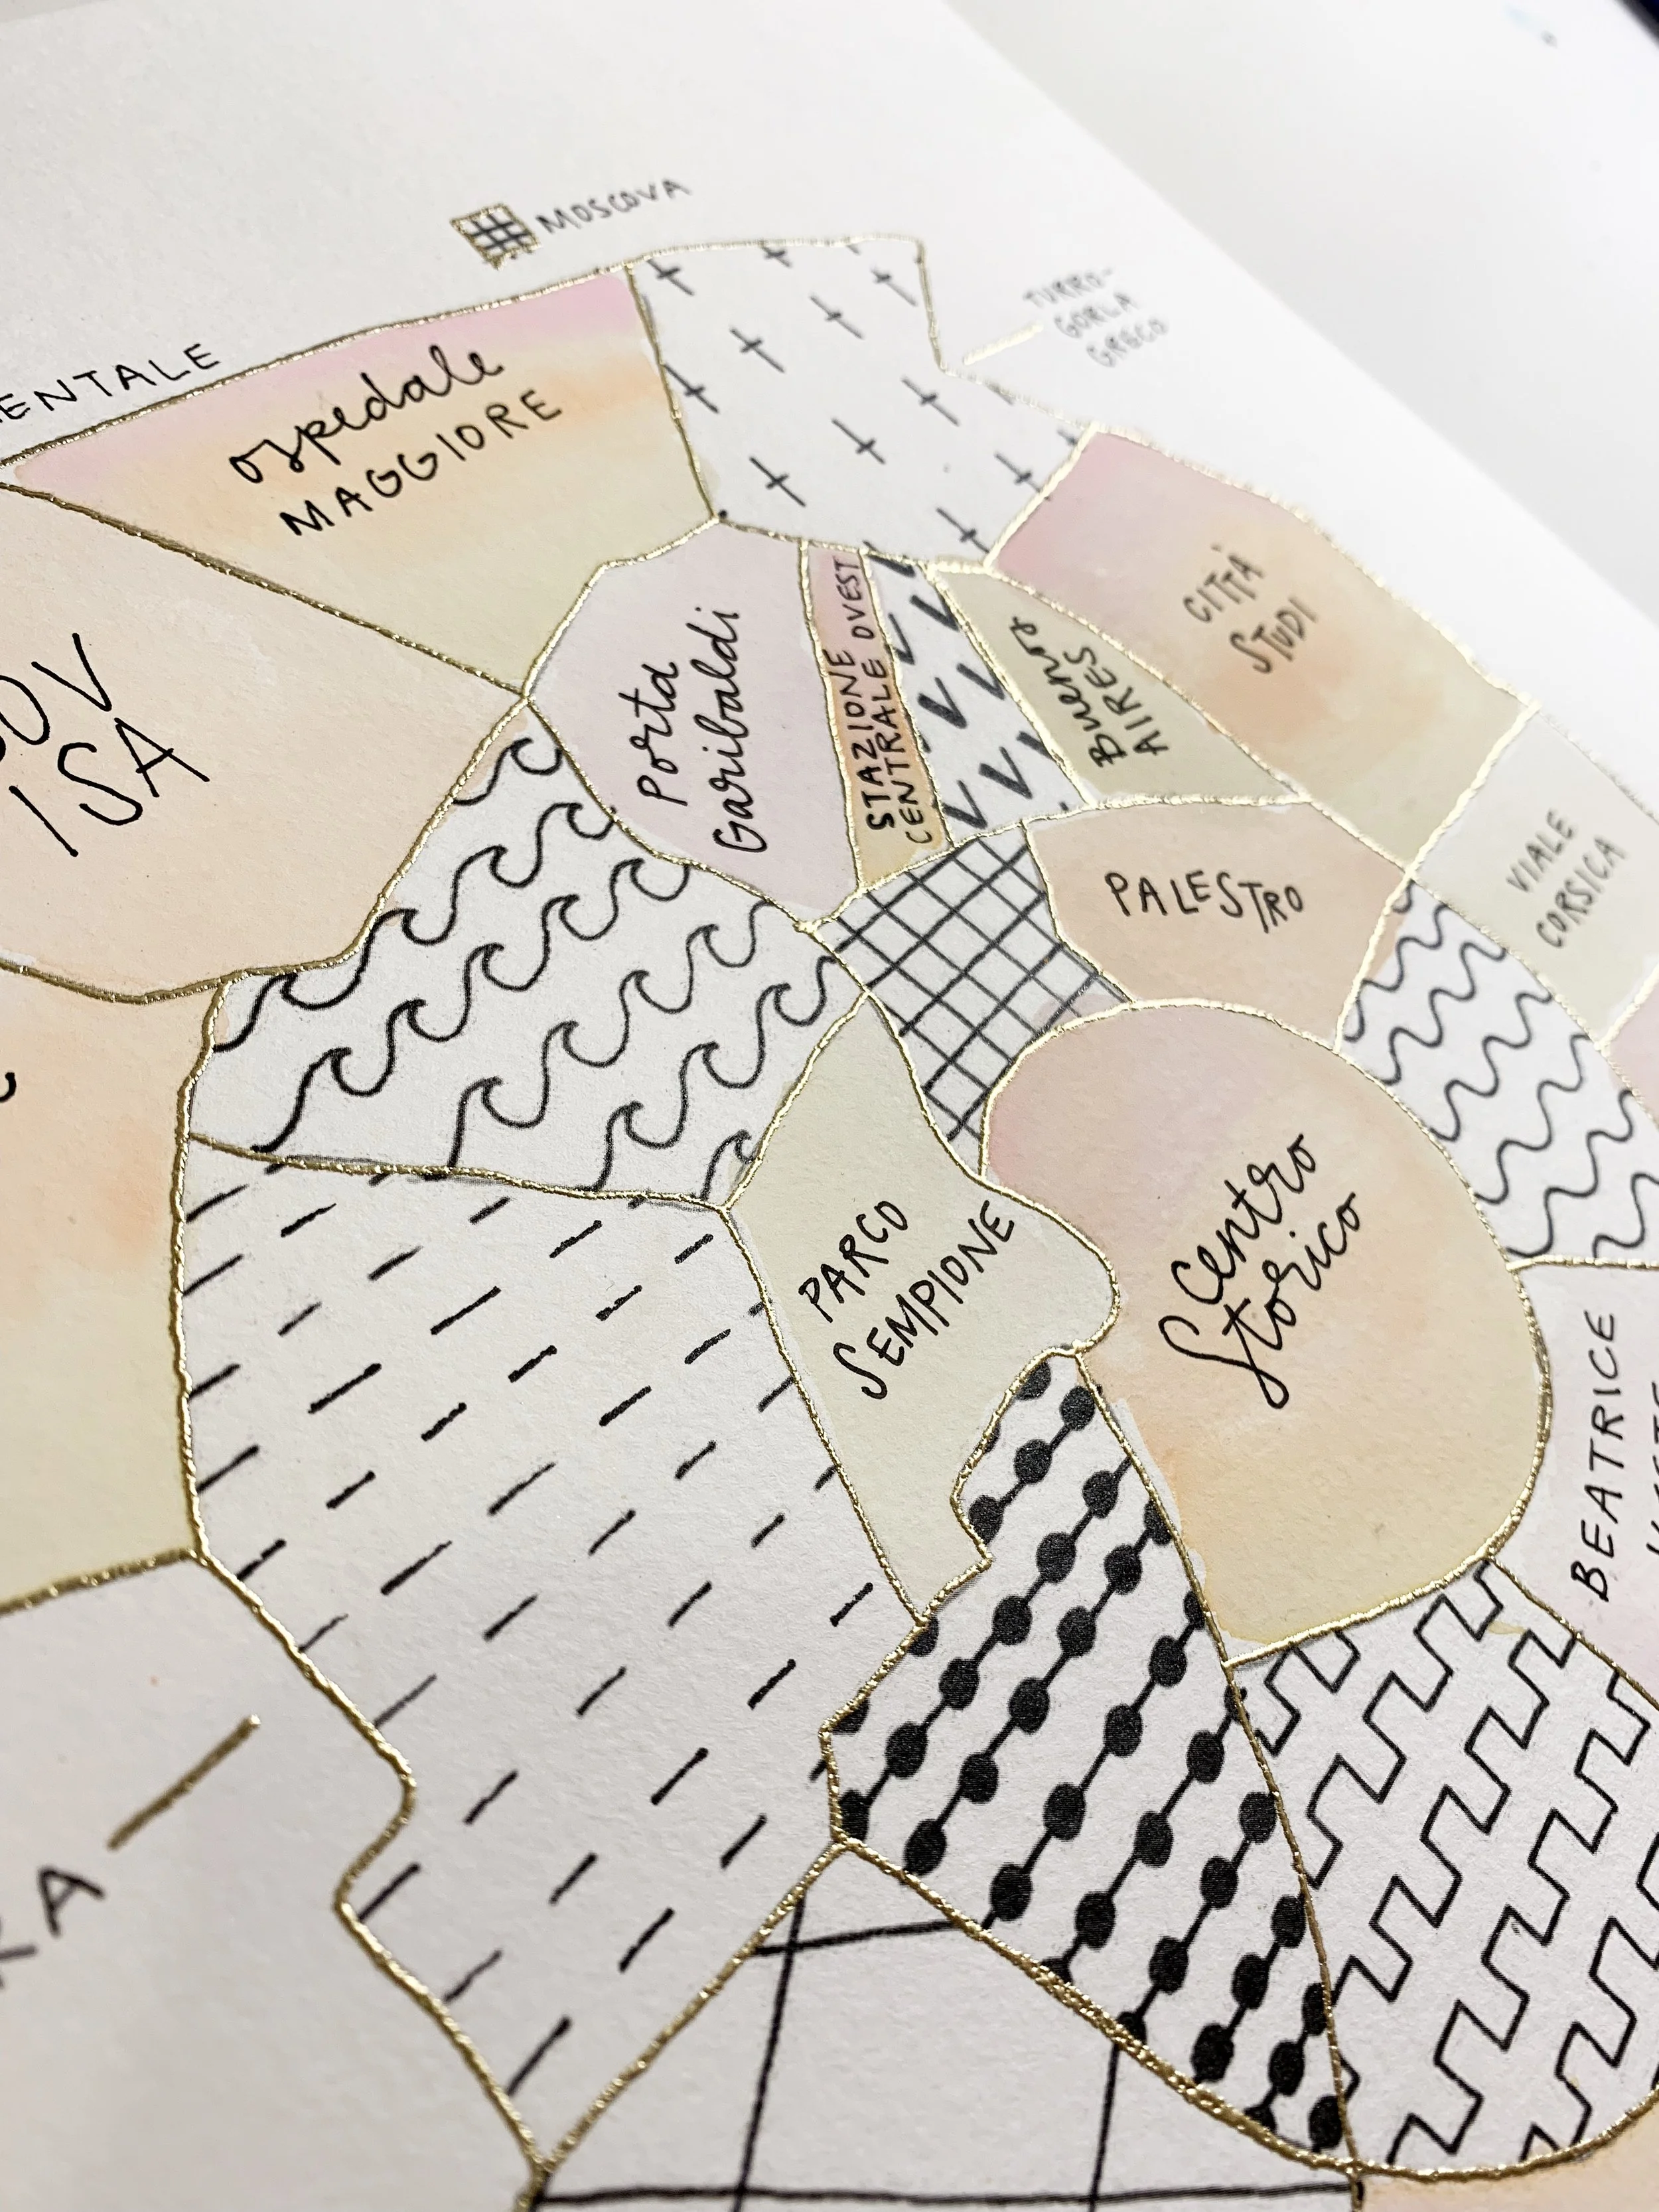 MOSCOVA
TURRO-
GORLA
GRECO
ENTALE
ospedale
MAGGIORE
OV
ISA
Porta
Garibaldi
STAZIONE
CENTRALE OVEST
Buenos
AIRES
CITTÀ
STUDI
PALESTRO
VIALE
CORSICA
PARCO
SEMPIONE
Centro
Storico
BEATRICE
RA